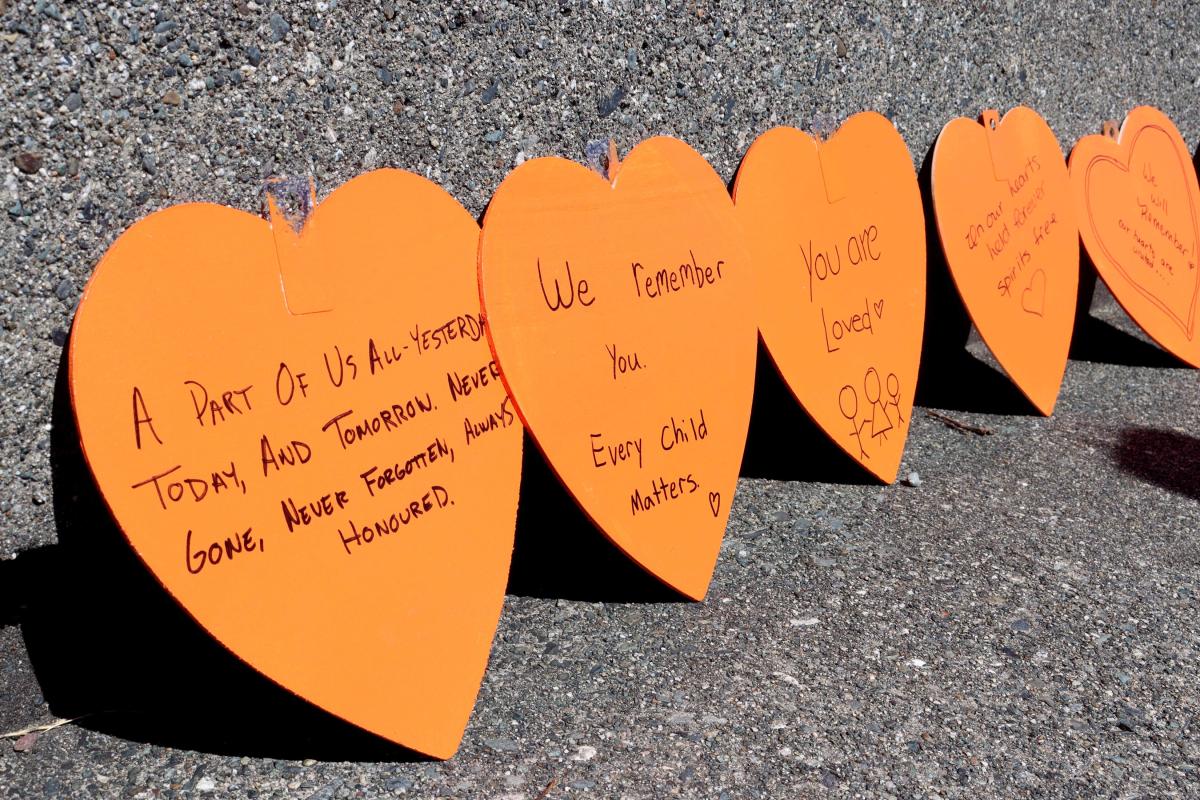 A PART OF US ALL-YESTERDA
TODAY, AND TOMORROW. NEVER
GONE, NEVER FORGOTTEN, ALWAYS
HONOURED.
We remember
You.
Every Child
Matters.
You are
Loved
In our hearts
held forever
spirits free
We
will
Remember
our hearts are
united...